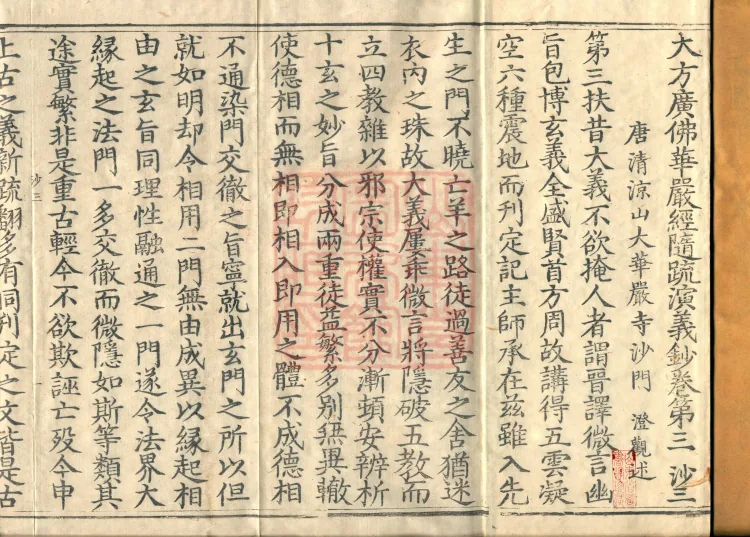 大方廣佛華嚴經隨疏演義鈔卷第三 沙三
唐清涼山大華嚴寺沙門 澄觀述
第三扶昔大義不欲掩人者謂晉譯微言幽
旨包博玄義全盛賢首方周故講得五雲凝
空六種震地而刋定記主師承在茲雖入先
生之門不曉亡羊之路徒過善友之舍猶迷
衣內之珠故大義屢乖微言將隱破五教而
立四教雜以邪宗使權實不分漸頓安辨析
十玄之妙旨分成兩重徒益繁多別無異轍
使德相而無相即相入即用之體不成德相
不通染門交徹之旨寧就出玄門之所以但
就如明却令相用二門無由成異以緣起相
由之玄旨同理性融通之一門遂令法界大
緣起之法門一多交徹而微隱如斯等類其
途實繁非是重古輕今不欲欺誣亡歿今申
沙三
上古之義新疏翻多有同刋定之文皆是古